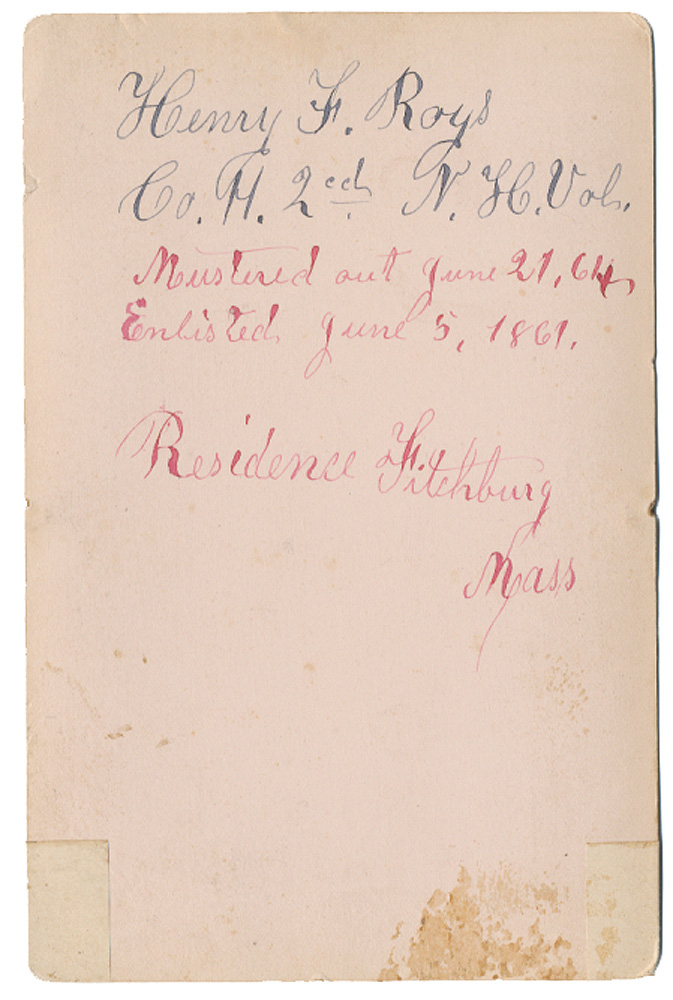 Henry F. Roys
Co. H. 2ed N. H. Vols.
Mustered out June 21, 64,
Enlisted June 5, 1861.
Residence Fitchburg
Mass